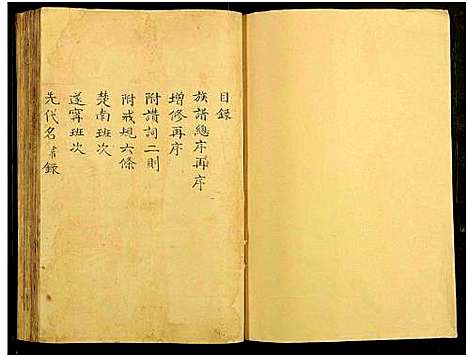 目錄
族譜總序再序
增修再序
附讚詞二則
附戒規六條
楚南班次
遂寧班次
先代名書錄